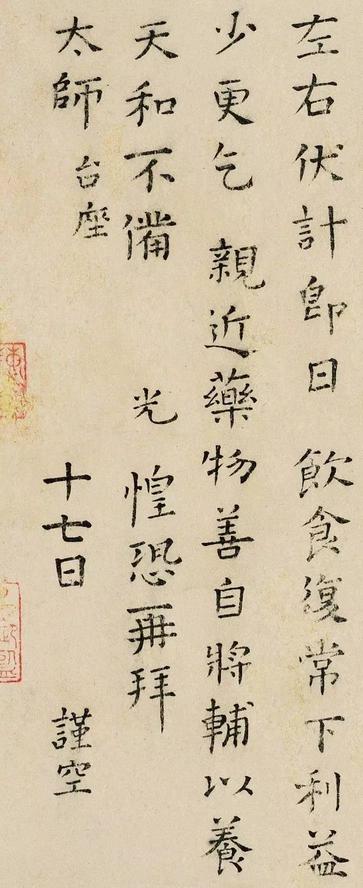 左右伏計即日 飲食復常下利益
少更乞 親近藥物善自將輔以養
天和不備 光 惶恐再拜
太師 台座
十七日 謹空